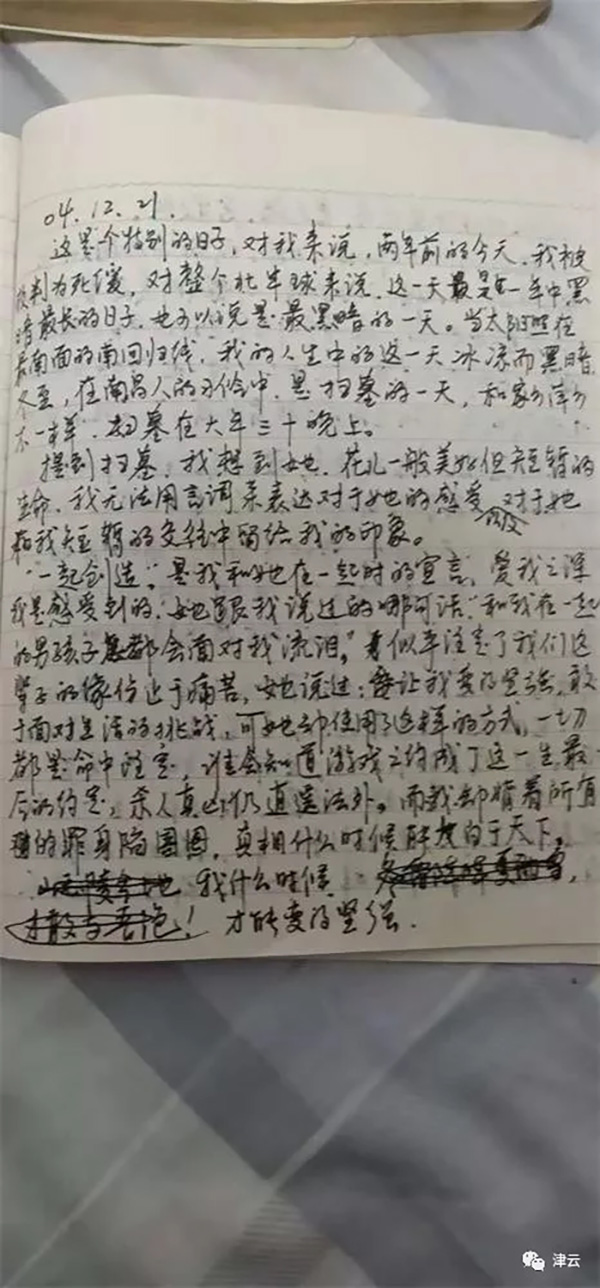 04.12.21.
这是个特别的日子，对我来说，两年前的今天，我被
判为死缓，对整个北半球来说，这一天最是一年中黑
暗最长的日子，也可以说是最黑暗的一天。当太阳照在
最南面的南回归线，我的人生中的这一天冰凉而黑暗
冬至，在南昌人的习俗中，是扫墓的一天，和家乡萍乡
不一样，扫墓在大年三十晚上。
提到扫墓，我想到她，花儿一般美好但短暂的
生命，我无法用言词来表达对于她的感受，对于她
和我短暂的交往中留给我的印象。
"一起创造"，是我和她在一起时的宣言，爱我之深
我是感受到的，她跟我说过的哪句话，"和我在一起
的男孩子都会面对我流泪，"似乎注定了我们这
辈子的缘份止于痛苦，她说过：会让我变得坚强，敢
于面对生活的挑战，可她却使用了这样的方式，一切
都是命中注定，谁会知道游戏之约成了这一生最
后的约定，杀人真凶仍逍遥法外，而我却背着所有
的罪身陷囹圄，真相什么时候大白于天下，
我什么时候
！才能变得坚强．
津云